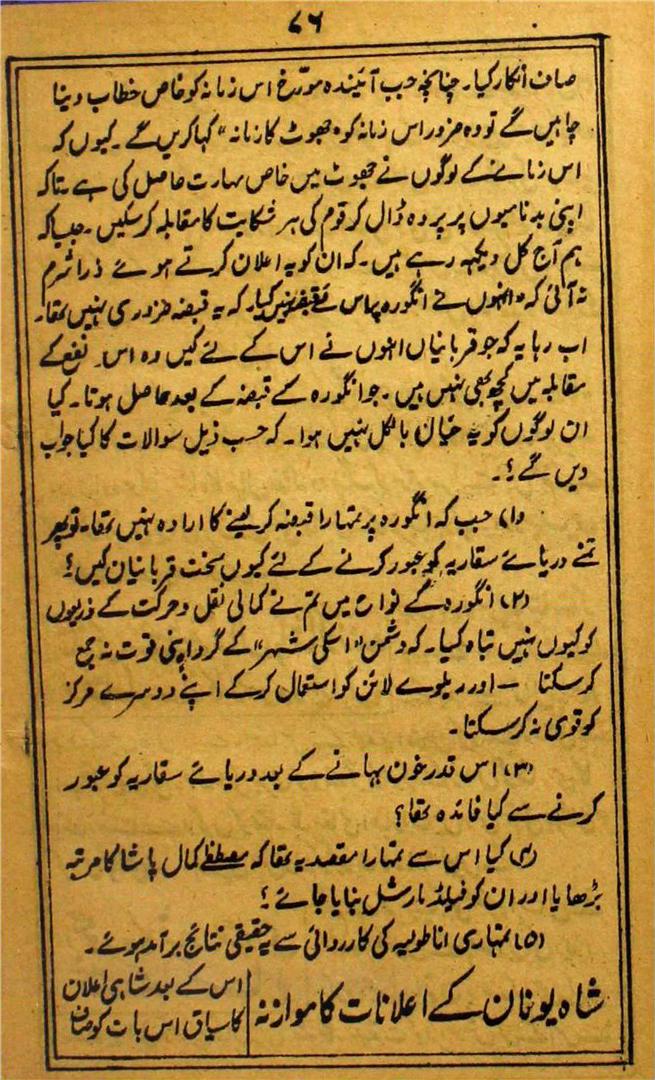 ۷۶
صاف انکار کیا۔ چنانچہ جب آئیندہ مورخ اس زمانہ کو خاص خطاب دینا
چاہیں گے تو وہ ضرور اس زمانہ کو "جھوٹ کا زمانہ" کہا کریں گے۔ کیوں کہ
اس زمانے کے لوگوں نے جھوٹ میں خاص مہارت حاصل کی ہے۔ تاکہ
اپنی بدنامیوں پر پردہ ڈال کر قوم کی ہر شکایت کا مقابلہ کر سکیں۔ جیسا کہ
ہم آج کل دیکھ رہے ہیں۔ کہ ان کو یہ اعلان کرتے ہوئے ذرا شرم
نہ آئی کہ "انہوں نے انگورہ پر اس لئے قبضہ نہیں کیا۔ کہ یہ قبضہ ضروری نہیں تھا۔
اب رہا یہ کہ جو قربانیاں انہوں نے اس کے لئے کیں وہ اس نفع کے
مقابلہ میں کچھ بھی نہیں ہیں۔ جو انگورہ کے قبضہ کے بعد حاصل ہوتا۔ کیا
ان لوگوں کو یہ خیال بالکل نہیں ہوا۔ کہ حسب ذیل سوالات کا کیا جواب
دیں گے؟۔
(۱) جب کہ انگورہ پر تمہارا قبضہ کر لینے کا ارادہ نہیں تھا۔ تو پھر
تمنے دریائے سقاریہ کو عبور کرنے کے لئے کیوں سخت قربانیاں کیں؟
(۲) انگورہ کے نواح میں تم نے کمالی نقل و حرکت کے ذریوں
کو کیوں نہیں تباہ کیا۔ کہ دشمن "اسکی شہر" کے گرد اپنی قوت نہ جمع
کر سکتا — اور ریلوے لائن کو استعمال کرکے اپنے دوسرے مرکز
کو قوی نہ کر سکتا۔
(۳) اس قدر خون بہانے کے بعد دریائے سقاریہ کو عبور
کرنے سے کیا فائدہ تھا؟
(۴) کیا اس سے تمہارا مقصد یہ تھا کہ مصطفےٰ کمال پاشا کا مرتبہ
بڑھایا اور ان کو فیلڈ مارشل بنایا جائے؟
(۵) تمہاری اناطولیہ کی کارروائی سے یہ حقیقی نتائج برآمد ہوئے۔
شاہ یونان کے اعلانات کا موازنہ
اس کے بعد شاہی اعلان
کا سیاق اس بات کو صاف